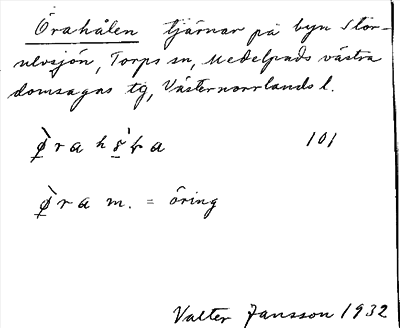 Örahålen tjärnar på byn Stor-
ulvsjön, Torps sn, Medelpads västra
domsagas tg, Västernorrlands l.
101
m. = öring
Valter Jansson 1932